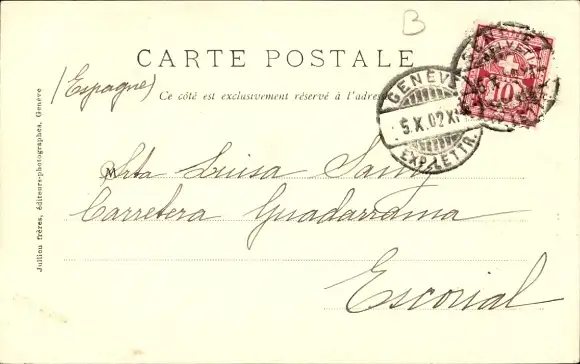 B
CARTE POSTALE
(Espagne)
Ce côté est exclusivement réservé à l'adresse
HELVETIA
10
GENÈVE
5.X.02.XI
EXP. LETTR.
M
Srta Luisa Sanz
Carretera Guadarrama
Escorial
Jullien frères, éditeurs-photographes, Genève